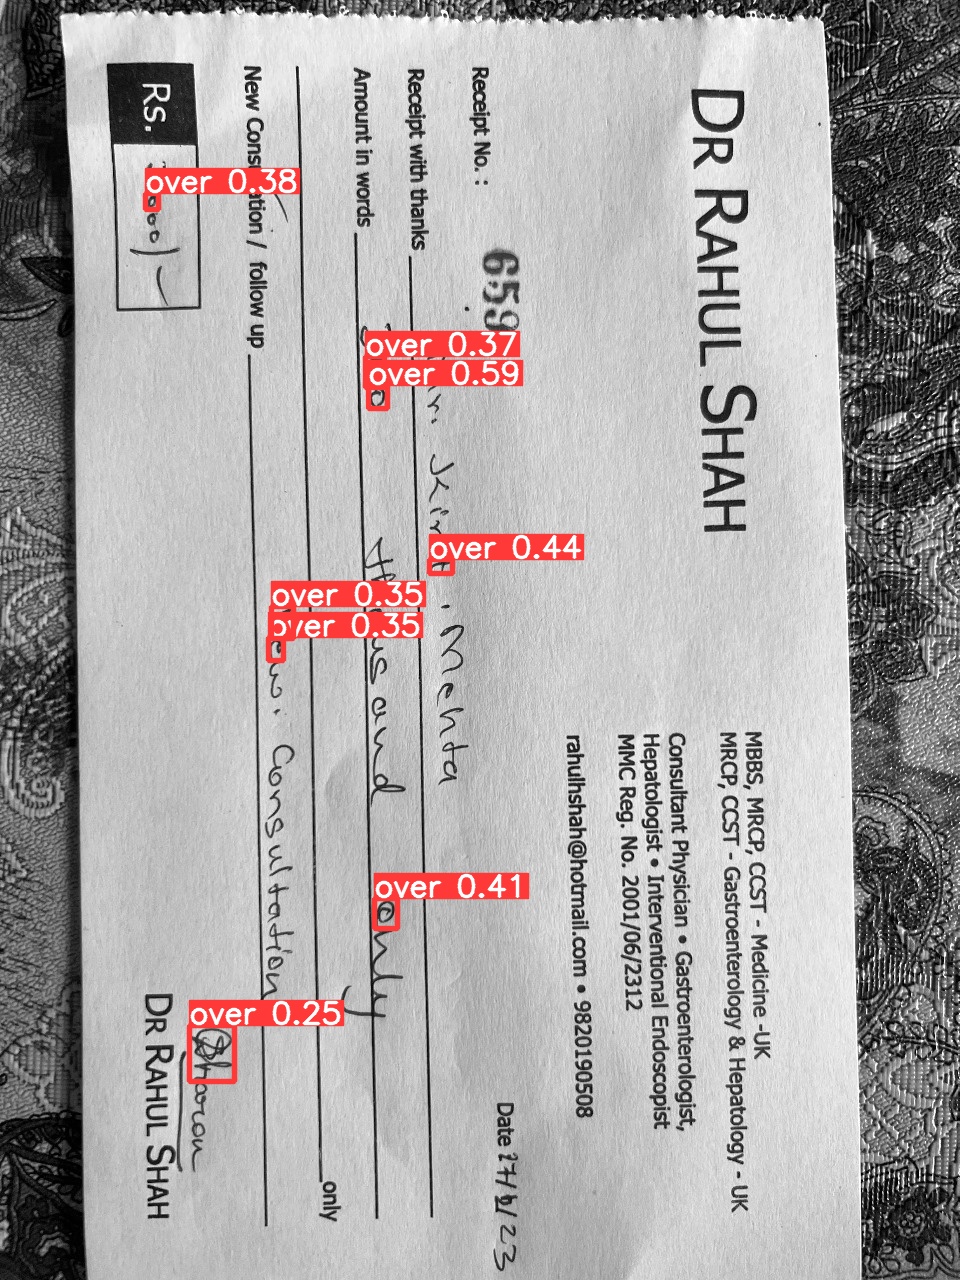 DR RAHUL SHAH
MBBS, MRCP, CCST - Medicine -UK
MRCP, CCST - Gastroenterology & Hepatology - UK
Consultant Physician • Gastroenterologist,
Hepatologist • Interventional Endoscopist
MMC Reg. No. 2001/06/2312
rahulhshah@hotmail.com • 9820190508
Receipt No. : 659
Date 27/ /23
Receipt with thanks Mehta
Amount in words only
only
New / follow up Consultation
Rs.
Sharon
DR RAHUL SHAH
over 0.38
over 0.37
over 0.59
over 0.44
over 0.35
over 0.35
over 0.41
over 0.25